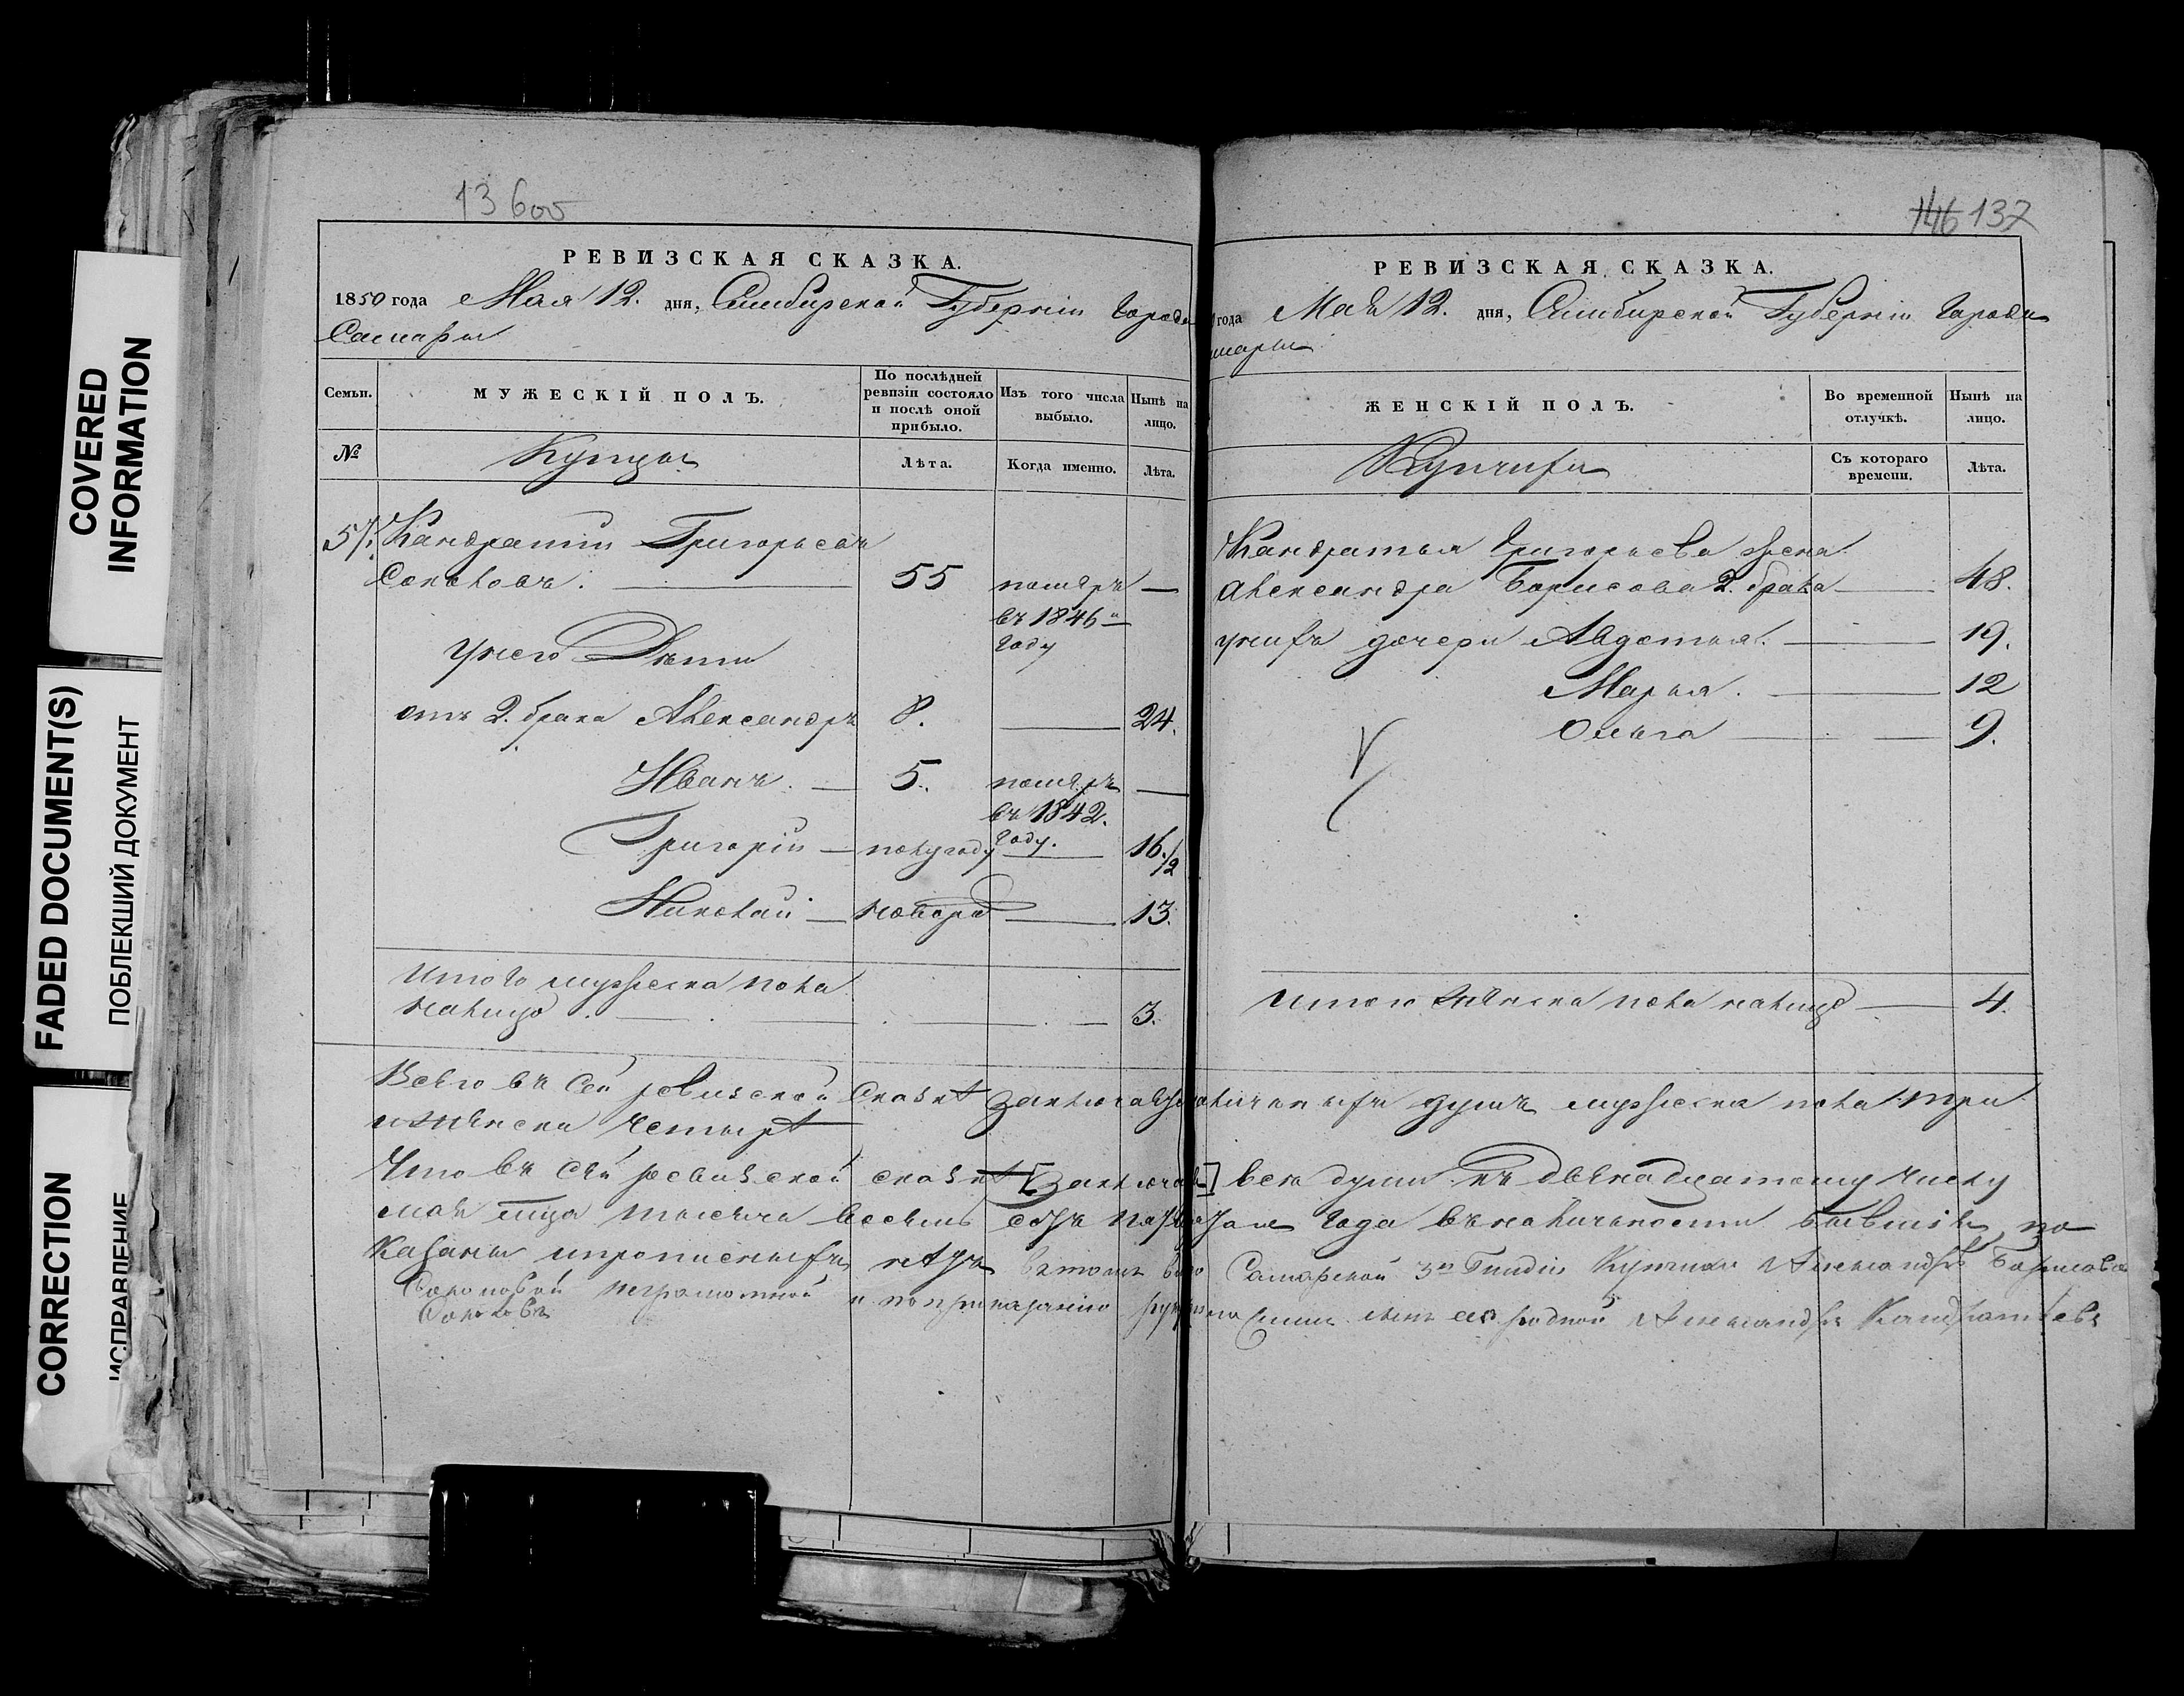 COVERED
INFORMATION
FADED DOCUMENT(S)
ПОБЛЕКШИЙ ДОКУМЕНТ
CORRECTION
ИСПРАВЛЕНИЕ
13 600
РЕВИЗСКАЯ СКАЗКА.
1850 года Мая 12. дня, Симбирской Губерніи города
Самары
Семьи. МУЖЕСКІЙ ПОЛЪ. По послѣдней ревизіи состояло и послѣ оной прибыло. Изъ того числа выбыло. Нынѣ на лицо.
№ Купцы Лѣта. Когда именно. Лѣта.
57. Кандратий Григорьевъ
Соколовъ. 55 помѣръ —
въ 1846 —
году
у него Дѣти
отъ 2. брака Александръ 8. 24.
Иванъ. 5. помѣръ —
въ 1842.
году.
Григорій полугоду 16 1/2
Николай новоро 13.
Итого мужеска пола
налицо 3.
146 137
РЕВИЗСКАЯ СКАЗКА.
года Мая 12. дня, Симбирской Губерніи города
мары
ЖЕНСКІЙ ПОЛЪ. Во временной отлучкѣ. Нынѣ на лицо.
Купчихи Съ котораго времени. Лѣта.
Кандратья Григорьева жена
Александра Борисова 2. брака 48.
у нихъ дочери Авдотья. 19.
Марья. 12
Ольга 9.
Итого женска пола налицо 4.
Всего въ сей ревизской сказкѣ наличныхъ душъ мужеска пола три
и женска четыре
Что въ сей ревизской сказкѣ всѣ души къ двѣнадцатому числу
мая тысяча восемь сотъ года въ наличности бывшія по
казаны и прописныхъ нѣтъ въ томъ Самарской 3й Гильдіи Купчихи Александры Борисовой
Соколовой неграмотной и по приказанію сынъ ея родной Александръ Кандратьевъ
Соколовъ